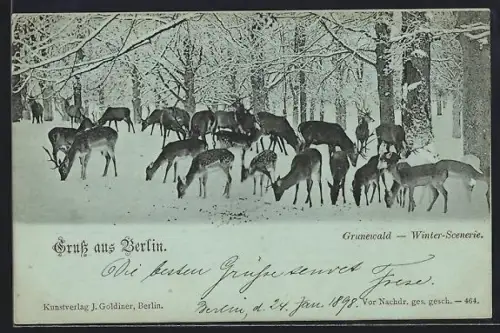 Gruß aus Berlin.
Grunewald — Winter-Scenerie.
Die besten Grüße sendet Frese.
Berlin, d. 24. Jan. 1898.
Kunstverlag J. Goldiner, Berlin.
Vor Nachdr. ges. gesch. — 464.